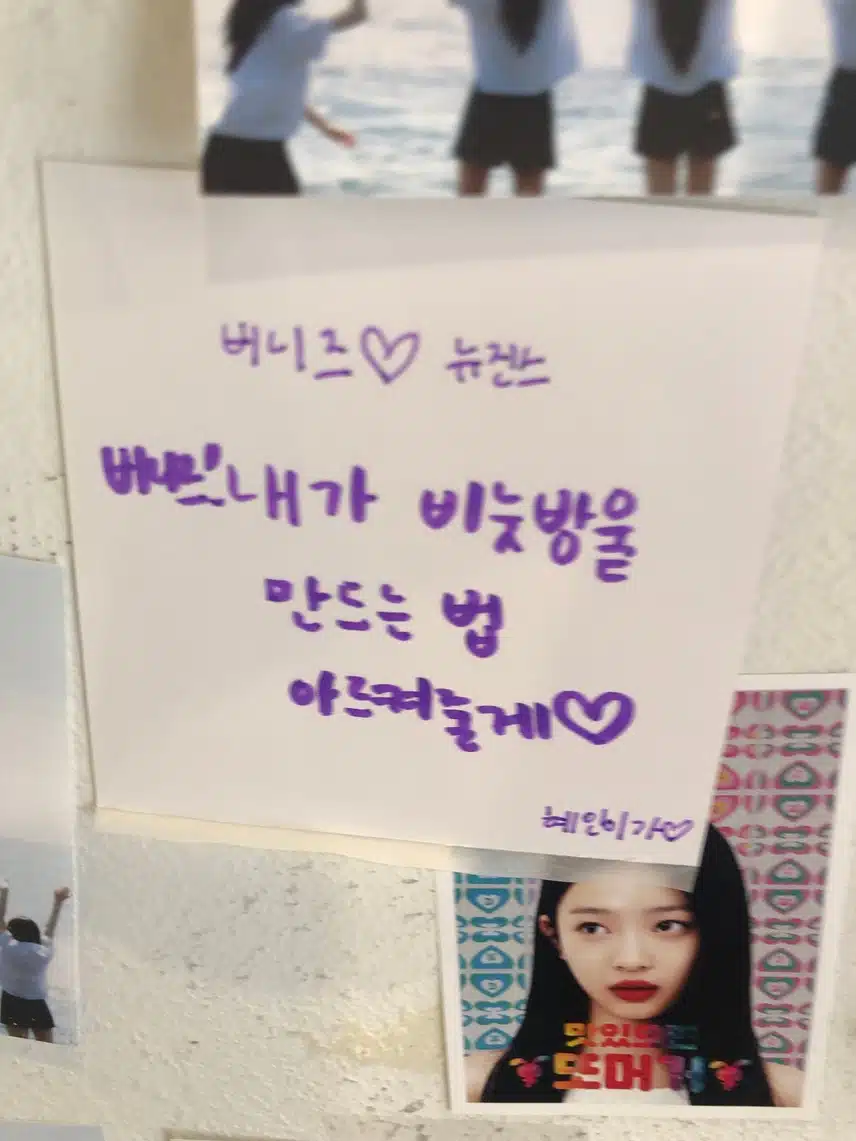 버니즈♡ 뉴진스
버니즈! 내가 비눗방울
만드는 법
아르켜줄게♡
혜인이가♡
맛있으면
또먹징